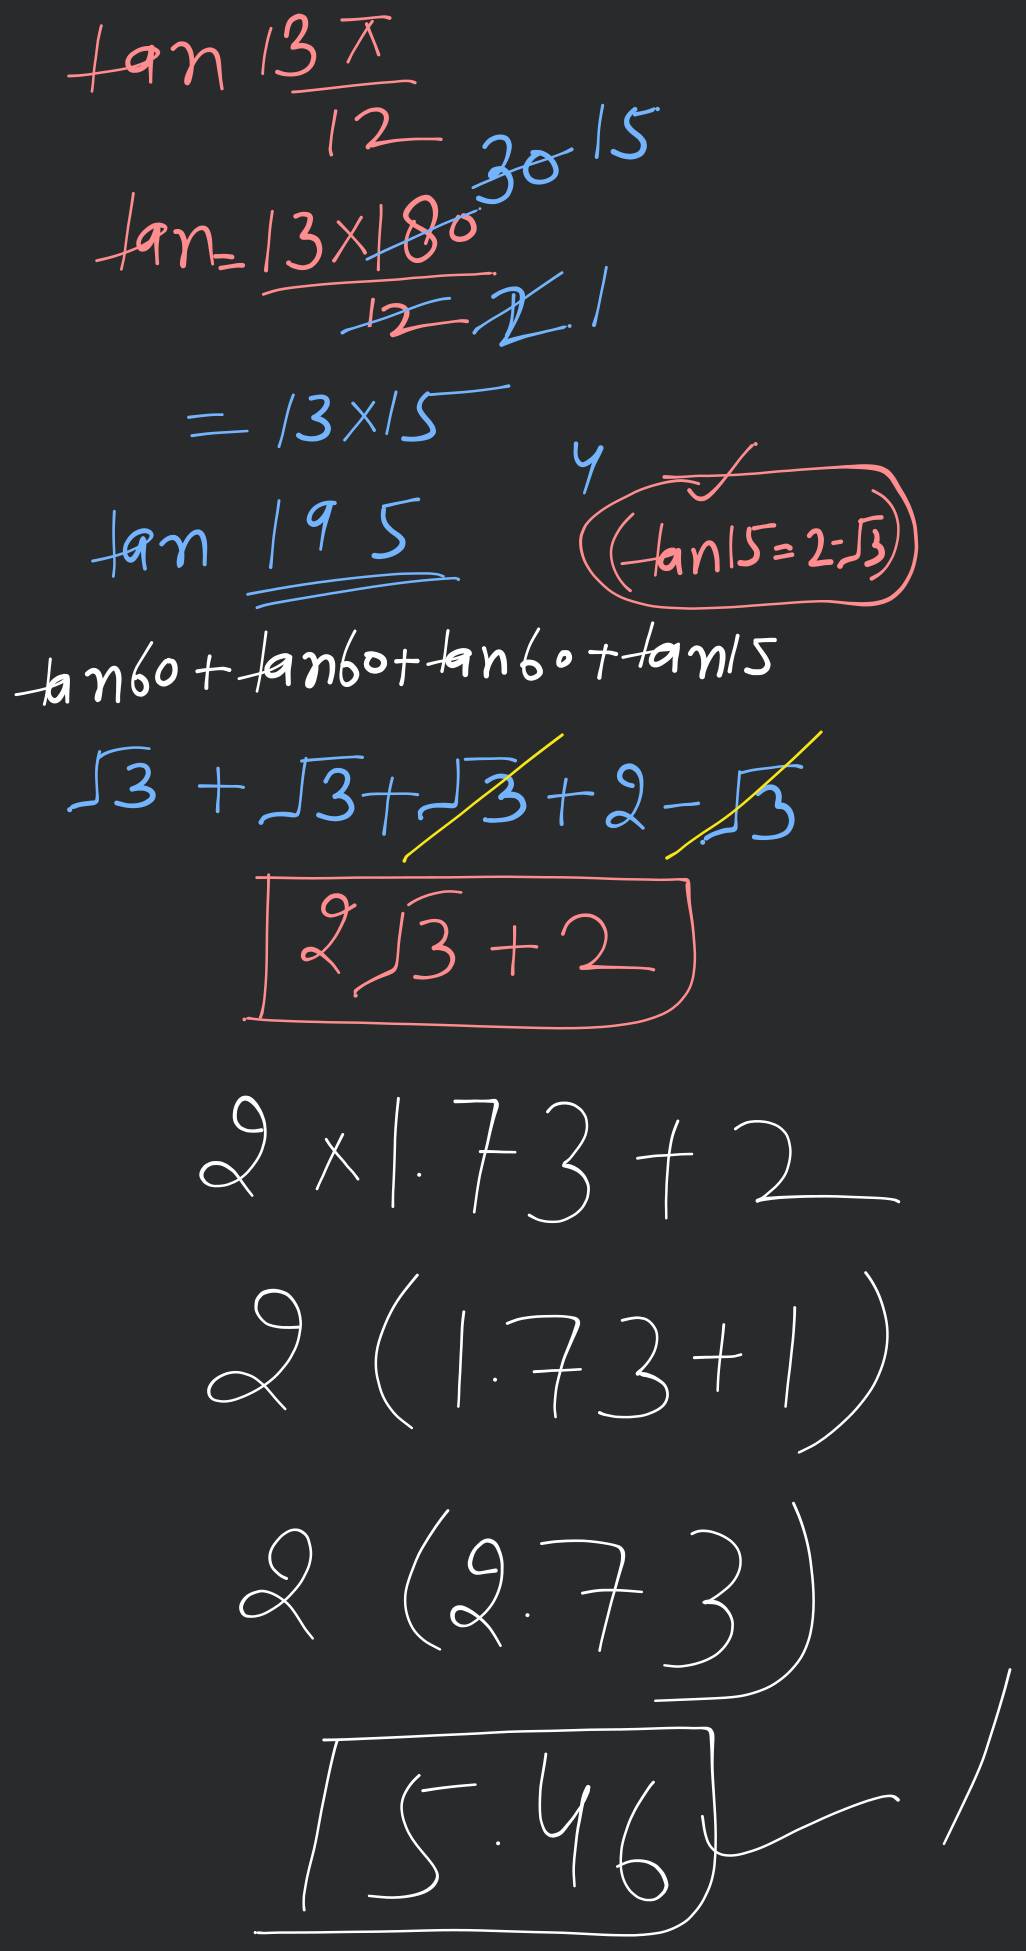 tan 13π
12
30 15
tan = 13×180
12 2 1
= 13×15
y
tan 195
(tan15=2-√3)
tan60+tan60+tan60+tan15
√3+√3+√3+2-√3
2√3+2
2×1.73+2
2(1.73+1)
2(2.73)
5.46